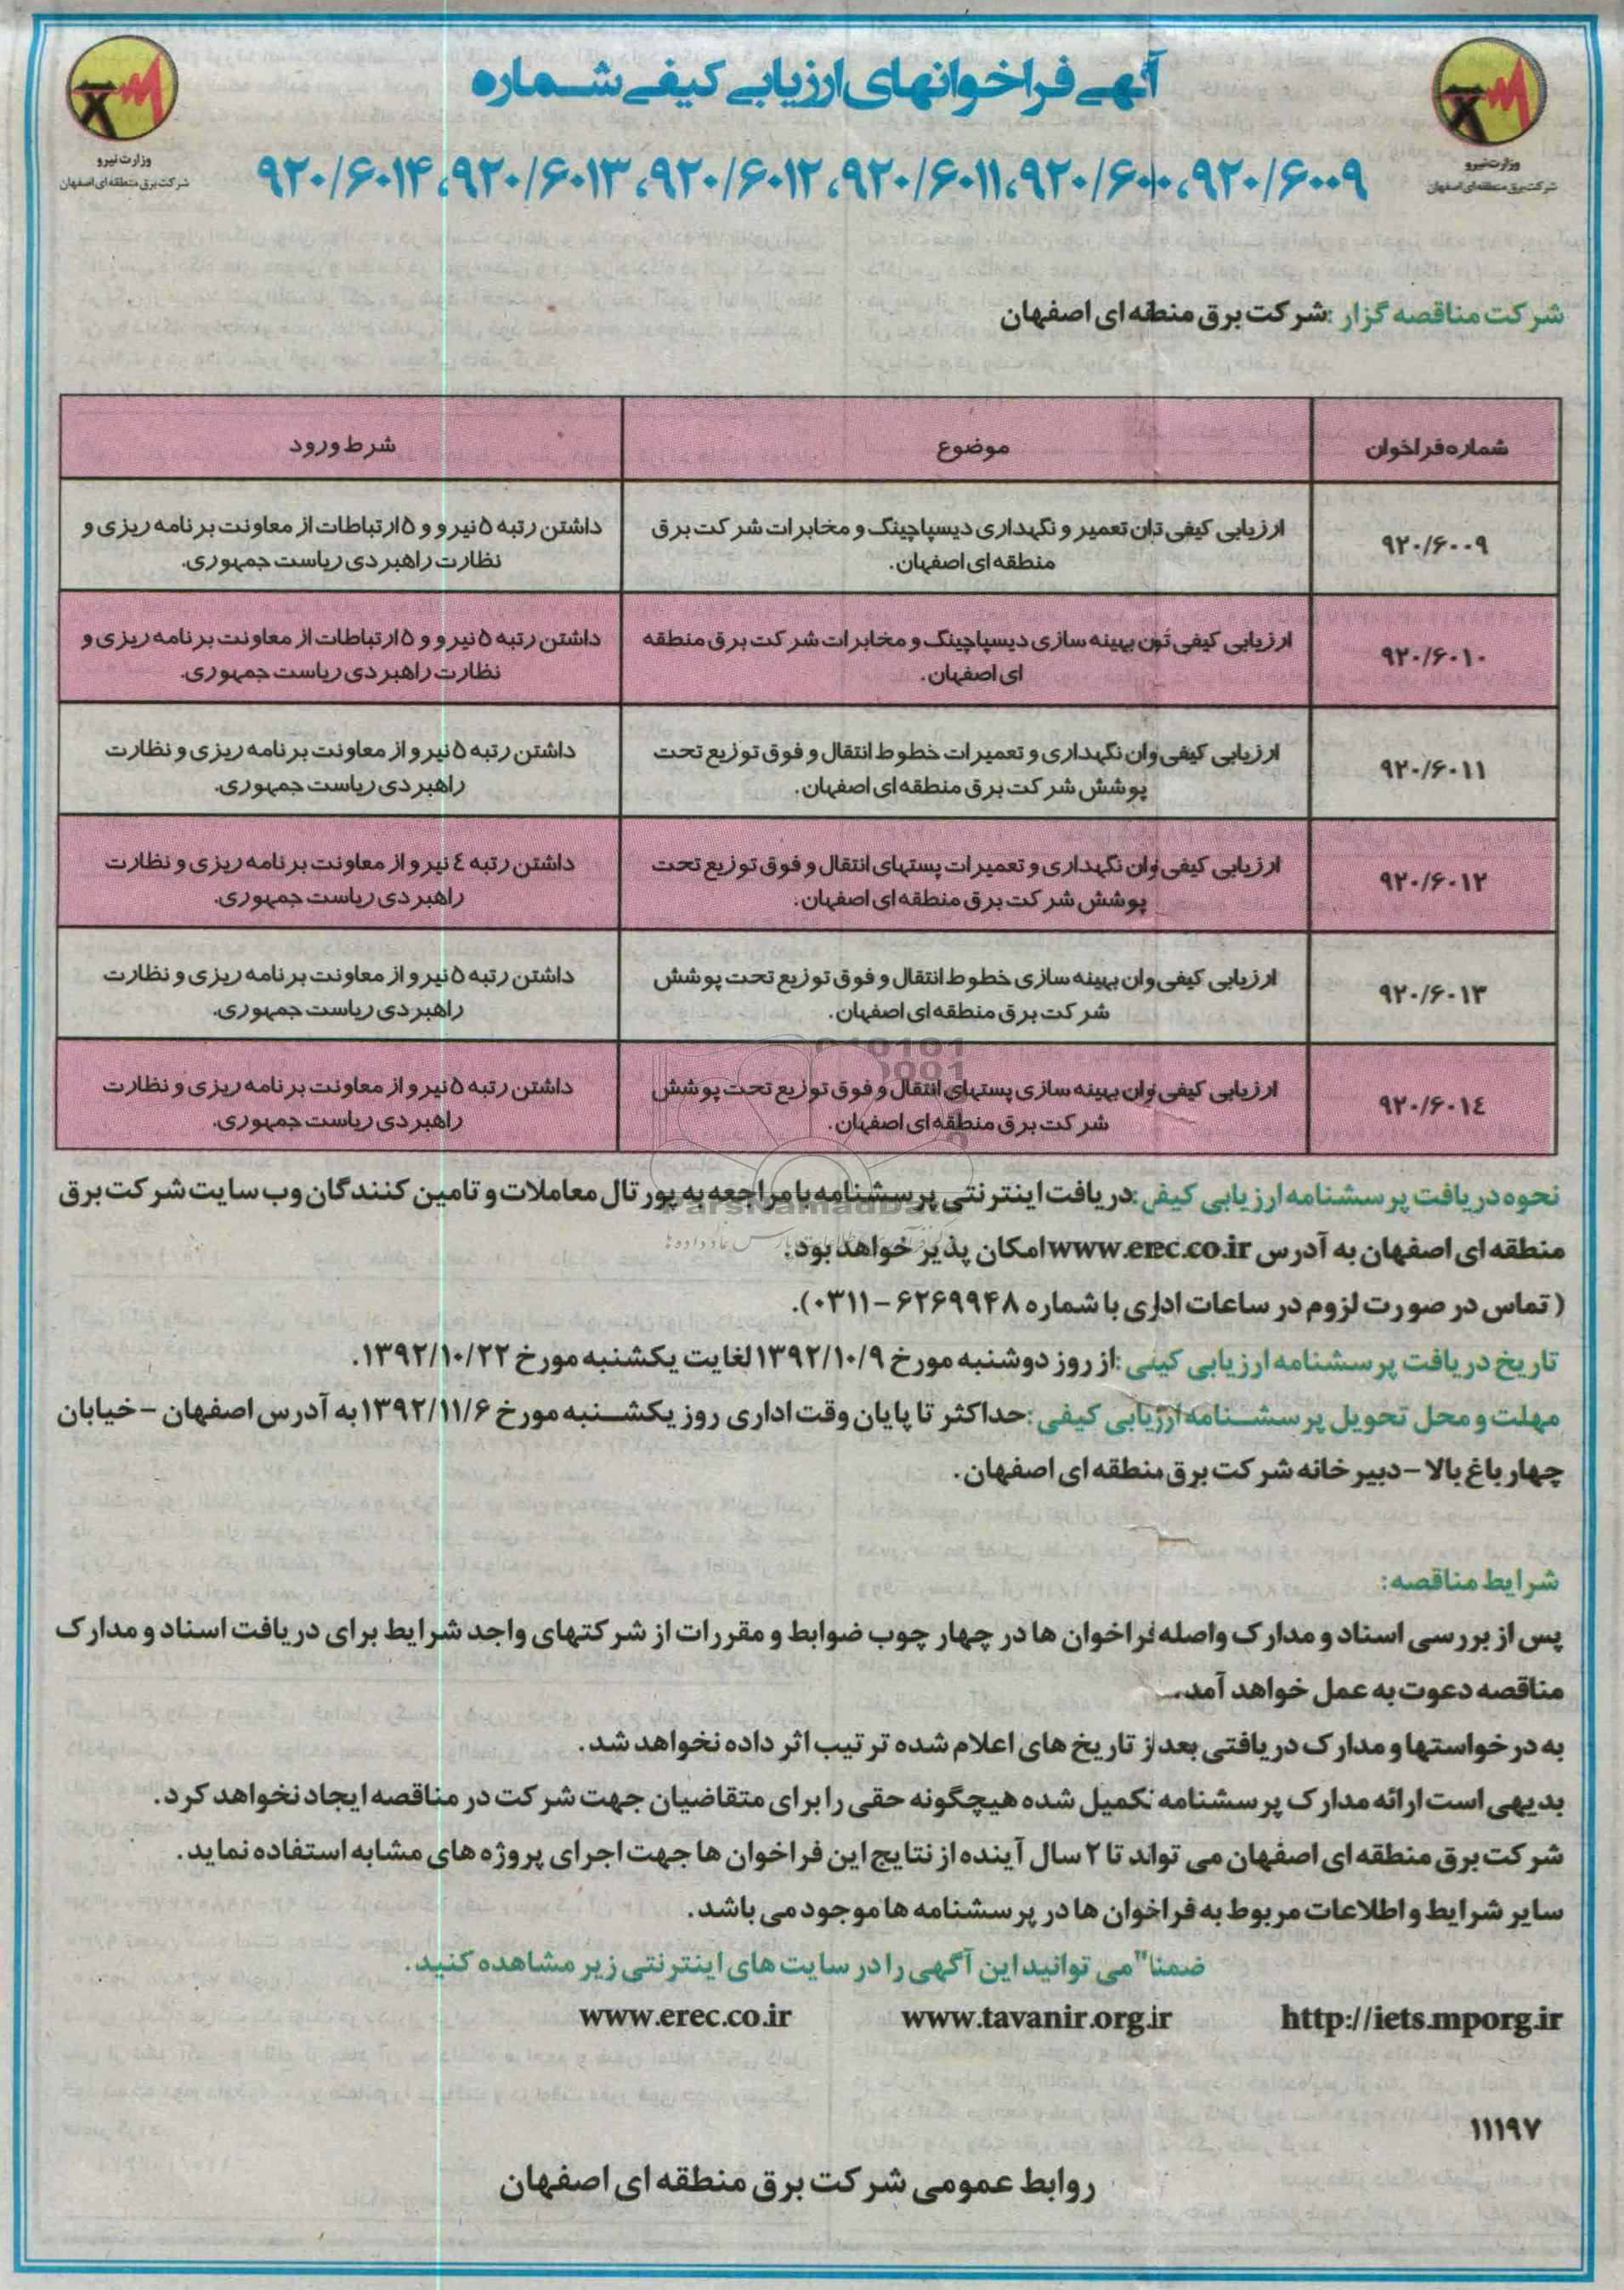 آگهی فراخوانهای ارزیابی کیفی شماره
۹۲۰/۶۰۰۹، ۹۲۰/۶۰۱۱، ۹۲۰/۶۰۱۲، ۹۲۰/۶۰۱۳، ۹۲۰/۶۰۱۴
وزارت نیرو
شرکت برق منطقه ای اصفهان
وزارت نیرو
شرکت برق منطقه ای اصفهان
شرکت مناقصه گزار: شرکت برق منطقه ای اصفهان
شماره فراخوان موضوع شرط ورود
۹۲۰/۶۰۰۹
ارزیابی کیفی توان تعمیر و نگهداری دیسپاچینگ و مخابرات شرکت برق
منطقه ای اصفهان.
داشتن رتبه ۵ نیرو و ۵ ارتباطات از معاونت برنامه ریزی و
نظارت راهبردی ریاست جمهوری.
۹۲۰/۶۰۱۰
ارزیابی کیفی توان بهینه سازی دیسپاچینگ و مخابرات شرکت برق منطقه
ای اصفهان.
داشتن رتبه ۵ نیرو و ۵ ارتباطات از معاونت برنامه ریزی و
نظارت راهبردی ریاست جمهوری.
۹۲۰/۶۰۱۱
ارزیابی کیفی توان نگهداری و تعمیرات خطوط انتقال و فوق توزیع تحت
پوشش شرکت برق منطقه ای اصفهان.
داشتن رتبه ۵ نیرو از معاونت برنامه ریزی و نظارت
راهبردی ریاست جمهوری.
۹۲۰/۶۰۱۲
ارزیابی کیفی توان نگهداری و تعمیرات پستهای انتقال و فوق توزیع تحت
پوشش شرکت برق منطقه ای اصفهان.
داشتن رتبه ٤ نیرو از معاونت برنامه ریزی و نظارت
راهبردی ریاست جمهوری.
۹۲۰/۶۰۱۳
ارزیابی کیفی توان بهینه سازی خطوط انتقال و فوق توزیع تحت پوشش
شرکت برق منطقه ای اصفهان.
داشتن رتبه ۵ نیرو از معاونت برنامه ریزی و نظارت
راهبردی ریاست جمهوری.
۹۲۰/۶۰۱٤
ارزیابی کیفی توان بهینه سازی پستهای انتقال و فوق توزیع تحت پوشش
شرکت برق منطقه ای اصفهان.
داشتن رتبه ۵ نیرو از معاونت برنامه ریزی و نظارت
راهبردی ریاست جمهوری.
ParsNamadData
نحوه دریافت پرسشنامه ارزیابی کیفی: دریافت اینترنتی پرسشنامه با مراجعه به پورتال معاملات و تامین کنندگان وب سایت شرکت برق
منطقه ای اصفهان به آدرس www.erec.co.ir امکان پذیر خواهد بود.
(تماس در صورت لزوم در ساعات اداری با شماره ۶۲۶۹۹۴۸-۰۳۱۱).
تاریخ دریافت پرسشنامه ارزیابی کیفی: از روز دوشنبه مورخ ۱۳۹۲/۱۰/۹ لغایت یکشنبه مورخ ۱۳۹۲/۱۰/۲۲.
مهلت و محل تحویل پرسشنامه ارزیابی کیفی: حداکثر تا پایان وقت اداری روز یکشنبه مورخ ۱۳۹۲/۱۱/۶ به آدرس اصفهان - خیابان
چهارباغ بالا - دبیرخانه شرکت برق منطقه ای اصفهان.
شرایط مناقصه:
پس از بررسی اسناد و مدارک واصله فراخوان ها در چهار چوب ضوابط و مقررات از شرکتهای واجد شرایط برای دریافت اسناد و مدارک
مناقصه دعوت به عمل خواهد آمد.
به درخواستها و مدارک دریافتی بعد از تاریخ های اعلام شده ترتیب اثر داده نخواهد شد.
بدیهی است ارائه مدارک پرسشنامه تکمیل شده هیچگونه حقی را برای متقاضیان جهت شرکت در مناقصه ایجاد نخواهد کرد.
شرکت برق منطقه ای اصفهان می تواند تا ۲ سال آینده از نتایج این فراخوان ها جهت اجرای پروژه های مشابه استفاده نماید.
سایر شرایط و اطلاعات مربوط به فراخوان ها در پرسشنامه ها موجود می باشد.
ضمنا" می توانید این آگهی را در سایت های اینترنتی زیر مشاهده کنید.
http://iets.mporg.ir www.tavanir.org.ir www.erec.co.ir
۱۱۱۹۷
روابط عمومی شرکت برق منطقه ای اصفهان